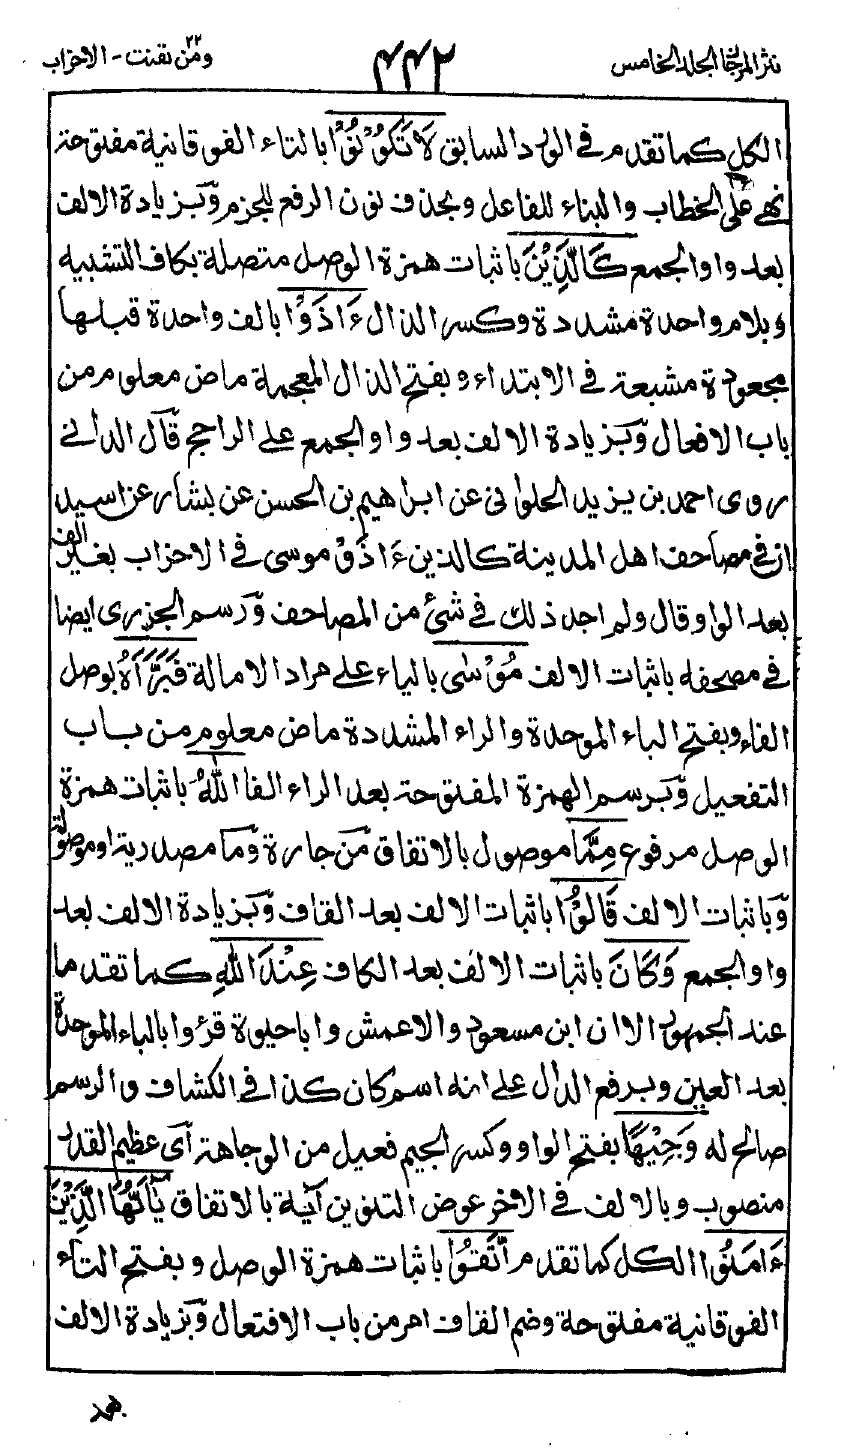 نثر المرجان الجلد الخامس
٤٤٢
ومن يقنت ٢٢ - الاحزاب
الكل كما تقدم في الورد السابق لَا تَكُوْنُوْا بالتاء الفوقانية مفتوحة
نهى على الخطاب والبناء للفاعل وبحذف نون الرفع للجزم وبزيادة الالف
بعد واو الجمع كَالَّذِيْنَ باثبات همزة الوصل متصلة بكاف التشبيه
وبلام واحدة مشددة وكسر الذال ءَاذَوْا بالف واحدة قبلها
مجعودة مشبعة في الابتداء وبفتح الذال المعجمة ماض معلوم من
باب الافعال وبزيادة الالف بعد واو الجمع على الراجح قال الداني
روى احمد بن يزيد الحلواني عن ابراهيم بن الحسن عن بشار عن اسيد
ان في مصاحف اهل المدينة كالذين ءَاذَوْ موسى في الاحزاب بغير الف
بعد الواو قال ولم اجد ذلك في شئ من المصاحف ورسم الجزرى ايضا
في مصحفه باثبات الالف مُوْسٰى بالياء على مراد الامالة فَبَرَّأَهُ بوصل
الفاء وبفتح الباء الموحدة والراء المشددة ماض معلوم من باب
التفعيل وبرسم الهمزة المفتوحة بعد الراء الفا اللّٰهُ باثبات همزة
الوصل مرفوع مِمَّا موصول بالاتفاق من جارة وما مصدرية او موصولة
وباثبات الالف قَالُوْا باثبات الالف بعد القاف وبزيادة الالف بعد
واو الجمع وَكَانَ باثبات الالف بعد الكاف عِنْدَ اللّٰهِ كما تقدم ما
عند الجمهور الا ان ابن مسعود والاعمش وابا حيوة قرؤا بالباء الموحدة
بعد العين وبرفع الدال على انه اسم كان كذا في الكشاف والرسم
صالح له وَجِيْهًا بفتح الواو وكسر الجيم فعيل من الوجاهة أى عظيم القدر
منصوب وبالالف في الاخر عوض التنوين آية بالاتفاق يٰٓأَيُّهَا الَّذِيْنَ
ءَامَنُوا الكل كما تقدم اتَّقُوْا باثبات همزة الوصل وبفتح التاء
الفوقانية مفتوحة وضم القاف امر من باب الافتعال وبزيادة الالف
بعد